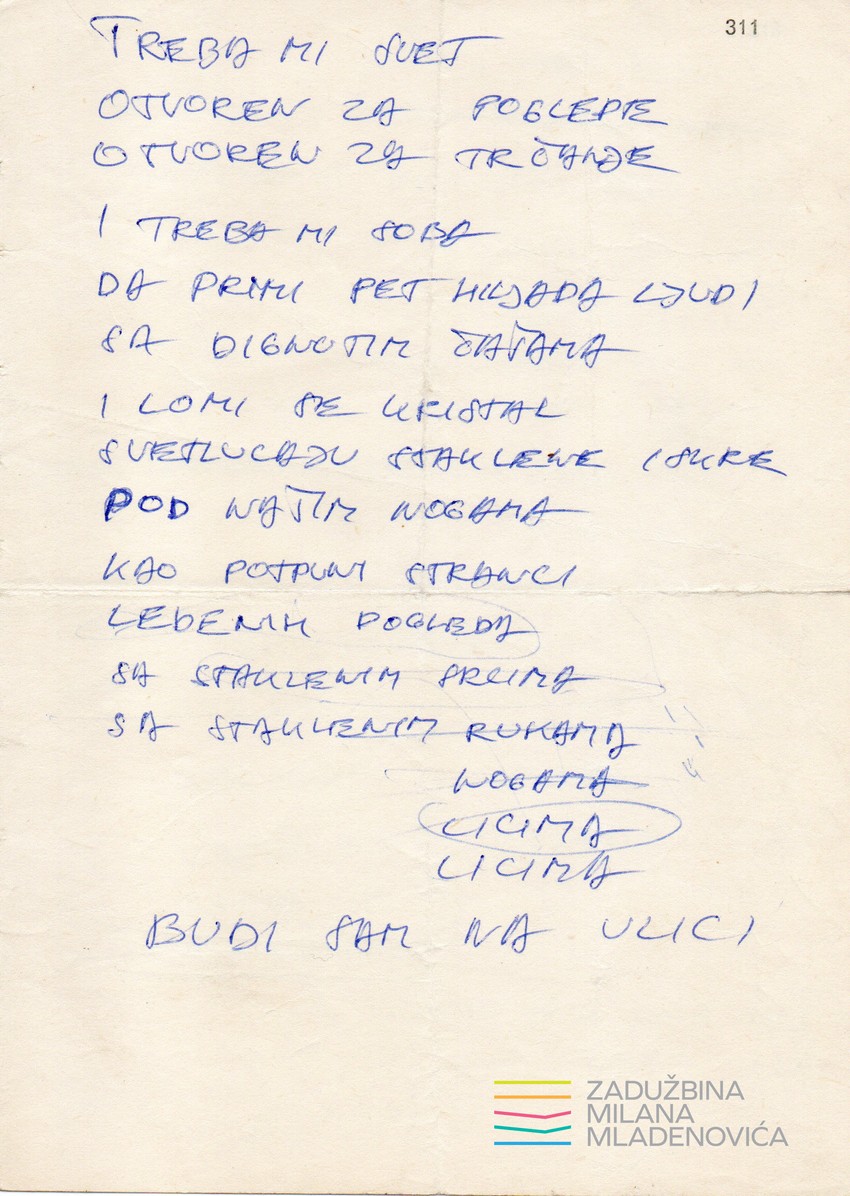 311
TREBA MI SVET
OTVOREN ZA POGLEDE
OTVOREN ZA TRČANJE
I TREBA MI SOBA
DA PRIMI PET HILJADA LJUDI
SA DIGNUTIM ČAŠAMA
I LOMI SE KRISTAL
SVETLUCAJU STAKLENE ISKRE
POD NAŠIM NOGAMA
KAO POTPUNI STRANCI
LEDENIH POGLEDA
SA STAKLENIM SRCIMA
SA STAKLENIM RUKAMA
NOGAMA
LICIMA
LICIMA
BUDI SAM NA ULICI
ZADUŽBINA
MILANA
MLADENOVIĆA